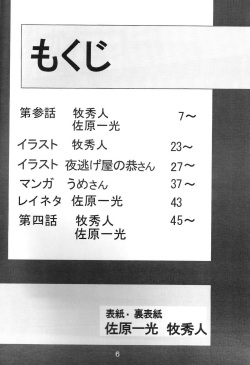 もくじ
第参話 牧秀人 7～
佐原一光
イラスト 牧秀人 23～
イラスト 夜逃げ屋の恭さん 27～
マンガ うめさん 37～
レイネタ 佐原一光 43
第四話 牧秀人 45～
佐原一光
表紙・裏表紙
佐原一光 牧秀人
6